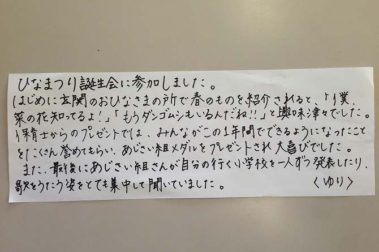 ひなまつり誕生会に参加しました。
はじめに玄関のおひなさまの所で春のものを紹介されると、「僕、
菜の花知ってるよ!」「もうダンゴムシもいるんだね!!」と興味津々でした。
保育士からのプレゼントでは、みんながこの1年間でできるようになったこと
をたくさん誉めてもらい、あじさい組メダルをプレゼントされ大喜びでした。
また、最後にあじさい組さんが自分の行く小学校を一人ずつ発表したり、
歌をうたう姿をとても集中して聞いていました。 〈ゆり〉